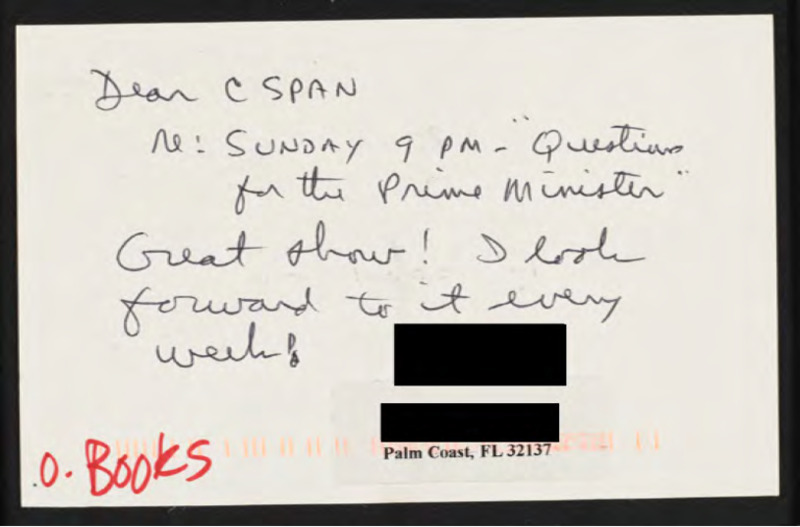 Dear C SPAN
re: SUNDAY 9 PM - "Questions
for the Prime Minister"
Great show! I look
forward to it every
week!
Palm Coast, FL 32137
O. BOOKS